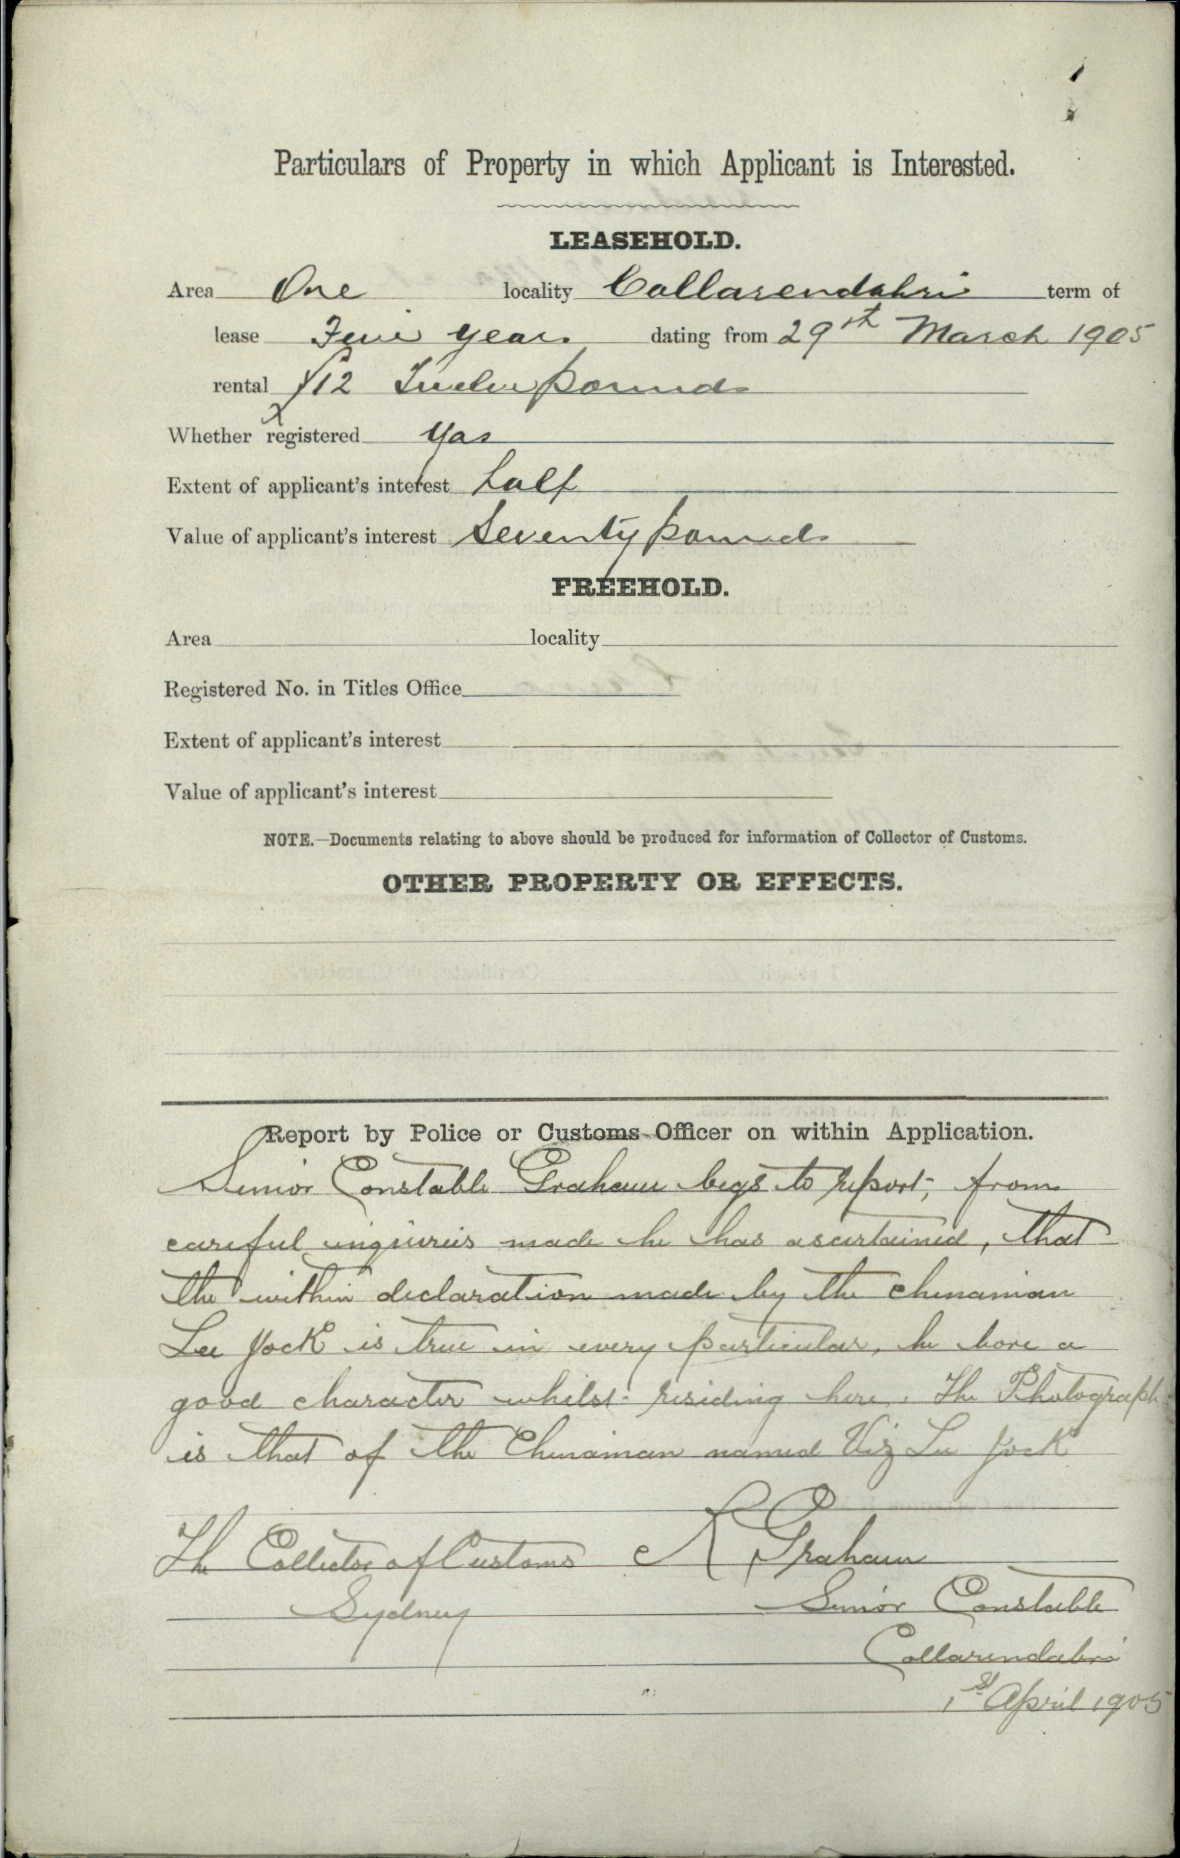 Particulars of Property in which Applicant is Interested.
LEASEHOLD.
Area One locality Collarendabri term of
lease Five years dating from 29th March 1905
rental £12 Twelve pounds
Whether registered Yas
Extent of applicant's interest half
Value of applicant's interest Seventy pounds
FREEHOLD.
Area locality
Registered No. in Titles Office
Extent of applicant's interest
Value of applicant's interest
NOTE.—Documents relating to above should be produced for information of Collector of Customs.
OTHER PROPERTY OR EFFECTS.
Report by Police or Customs Officer on within Application.
Senior Constable Graham begs to report, from
careful inquiries made he has ascertained, that
the within declaration made by the Chinaman
Lee Jock is true in every particular, he bore a
good character whilst residing here. The Photograph
is that of the Chinaman named Viz Lee Jock
The Collector of Customs R Graham
Sydney Senior Constable
Collarendabri
1st April 1905